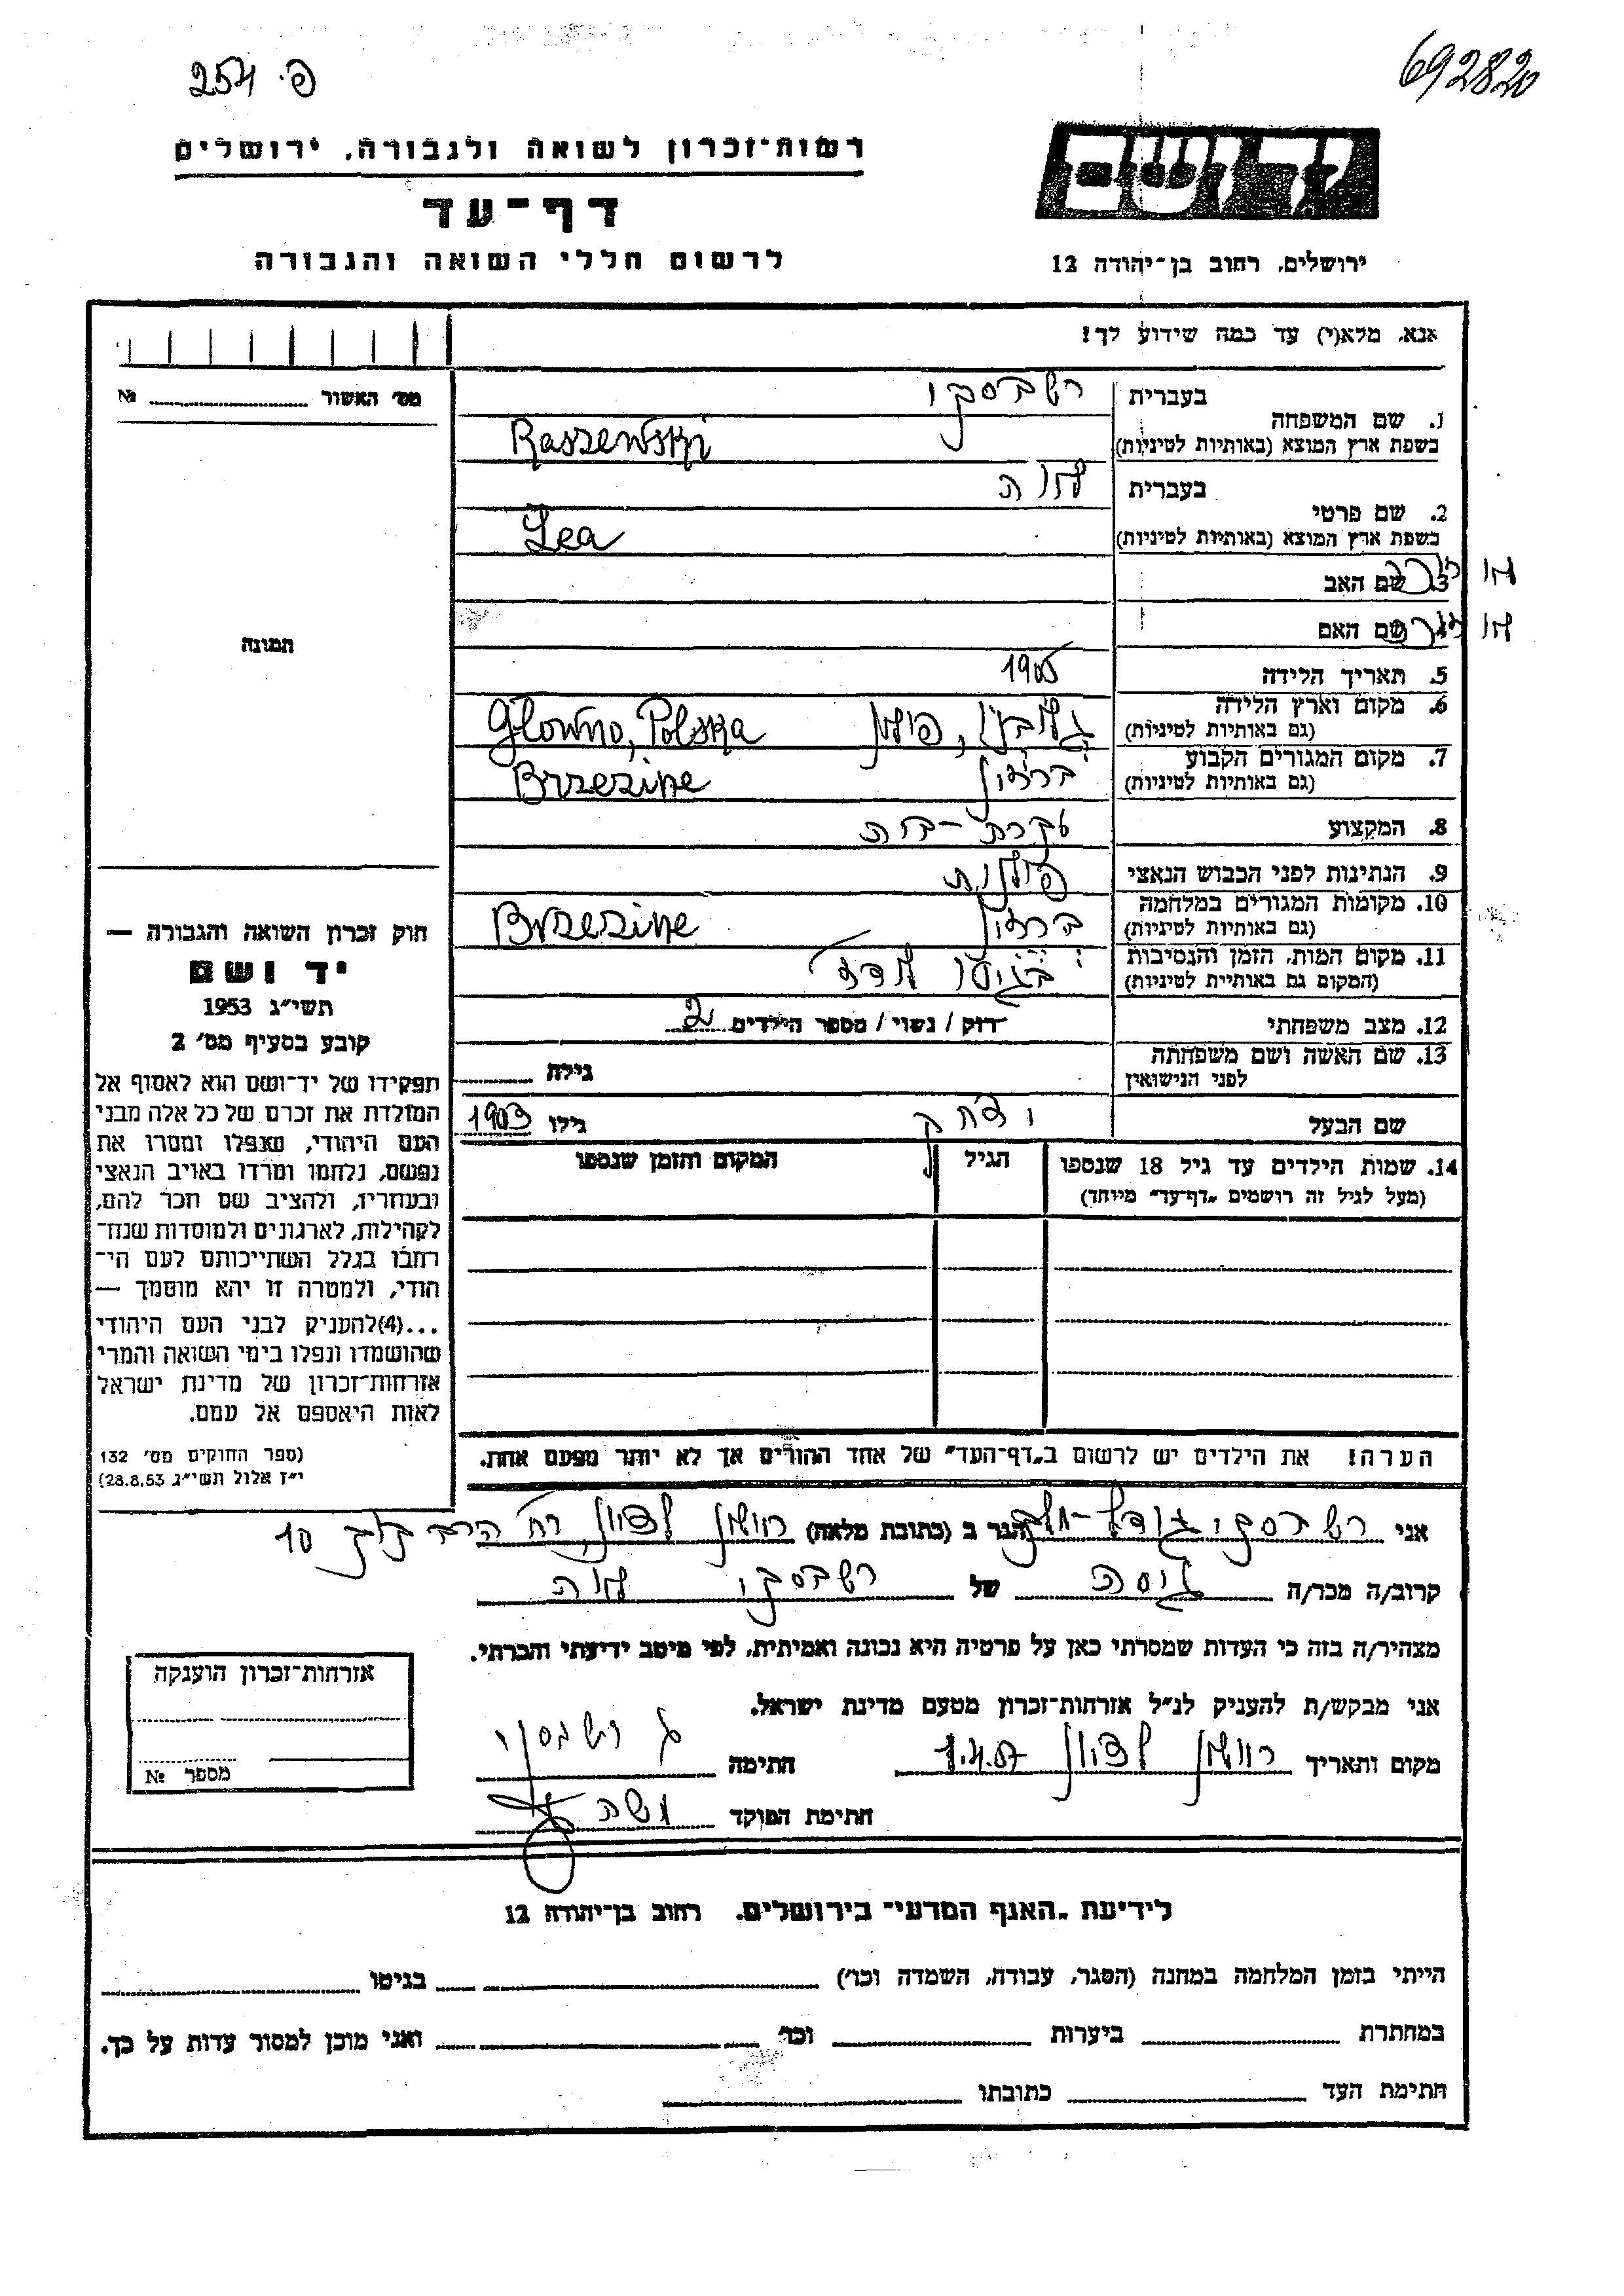 692820
פ. 254
יד ושם
ירושלים, רחוב בן-יהודה 12
רשות-זכרון לשואה ולגבורה, ירושלים
דף-עד
לרשום חללי השואה והגבורה
אנא, מלא(י) עד כמה שידוע לך!
מס׳ האשור № 
1. שם המשפחה
בעברית רשבסקי
בשפת ארץ המוצא (באותיות לטיניות) Raszewski
2. שם פרטי
בעברית לאה
בשפת ארץ המוצא (באותיות לטיניות) Lea
3. שם האב לא
4. שם האם לא
5. תאריך הלידה 1905
6. מקום וארץ הלידה
(גם באותיות לטיניות) גלובנו, פולין Głowno, Polska
7. מקום המגורים הקבוע
(גם באותיות לטיניות) ברזין Brzezine
8. המקצוע עקרת-בית
9. הנתינות לפני הכבוש הנאצי פולנית
10. מקומות המגורים במלחמה
(גם באותיות לטיניות) ברזין Brzezine
11. מקום המות, הזמן והנסיבות
(המקום גם באותיית לטיניות) בגיטו לודז׳
12. מצב משפחתי רוק / נשוי / מספר הילדים 2
13. שם האשה ושם משפחתה
לפני הנישואין גילה
שם הבעל יצחק גילו 1903
14. שמות הילדים עד גיל 18 שנספו
(מעל לגיל זה רושמים „דף-עד״ מייוחד)
הגיל
המקום והזמן שנספו
הערה! את הילדים יש לרשום ב„דף-העד״ של אחד ההורים אך לא יותר מפעם אחת.
תמונה
חוק זכרון השואה והגבורה —
יד ושם
תשי״ג 1953
קובע בסעיף מס׳ 2
תפקידו של יד-ושם הוא לאסוף אל
המולדת את זכרם של כל אלה מבני
העם היהודי, שנפלו ומסרו את
נפשם, נלחמו ומרדו באויב הנאצי
ובעוזריו, ולהציב שם וזכר להם,
לקהילות, לארגונים ולמוסדות שנח-
רחבו בגלל השתייכותם לעם הי-
הודי, ולמטרה זו יהא מוסמך —
...(4)להעניק לבני העם היהודי
שהושמדו ונפלו בימי השואה והמרי
אזרחות-זכרון של מדינת ישראל
לאות היאספם אל עמם.
(ספר החוקים מס׳ 132
י״ז אלול תשי״ג 28.8.53)
אני רשבסקי הגר ב (כתובת מלאה) ראשון לציון, רח׳ הרב קוק 10
קרוב/ה מכר/ה גיסה של רשבסקי לאה
מצהיר/ה בזה כי העדות שמסרתי כאן על פרטיה היא נכונה ואמיתית, לפי מיטב ידיעתי והכרתי.
אני מבקש/ת להעניק לנ״ל אזרחות-זכרון מטעם מדינת ישראל.
מקום ותאריך ראשון לציון חתימה ג רשבסקי
חתימת הפוקד משה
אזרחות-זכרון הוענקה
מספר №
לידיעת „האגף המדעי״ בירושלים, רחוב בן-יהודה 12
הייתי בזמן המלחמה במחנה (הסגר, עבודה, השמדה וכו׳) בגיטו
במחתרת ביערות וכו׳ ואני מוכן למסור עדות על כך.
חתימת העד כתובתו